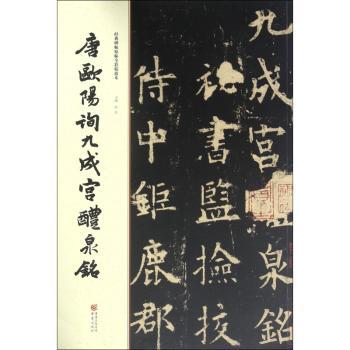 唐歐陽詢九成宮醴泉銘
九成宫醴泉銘
祕書監撿挍
侍中鉅鹿郡